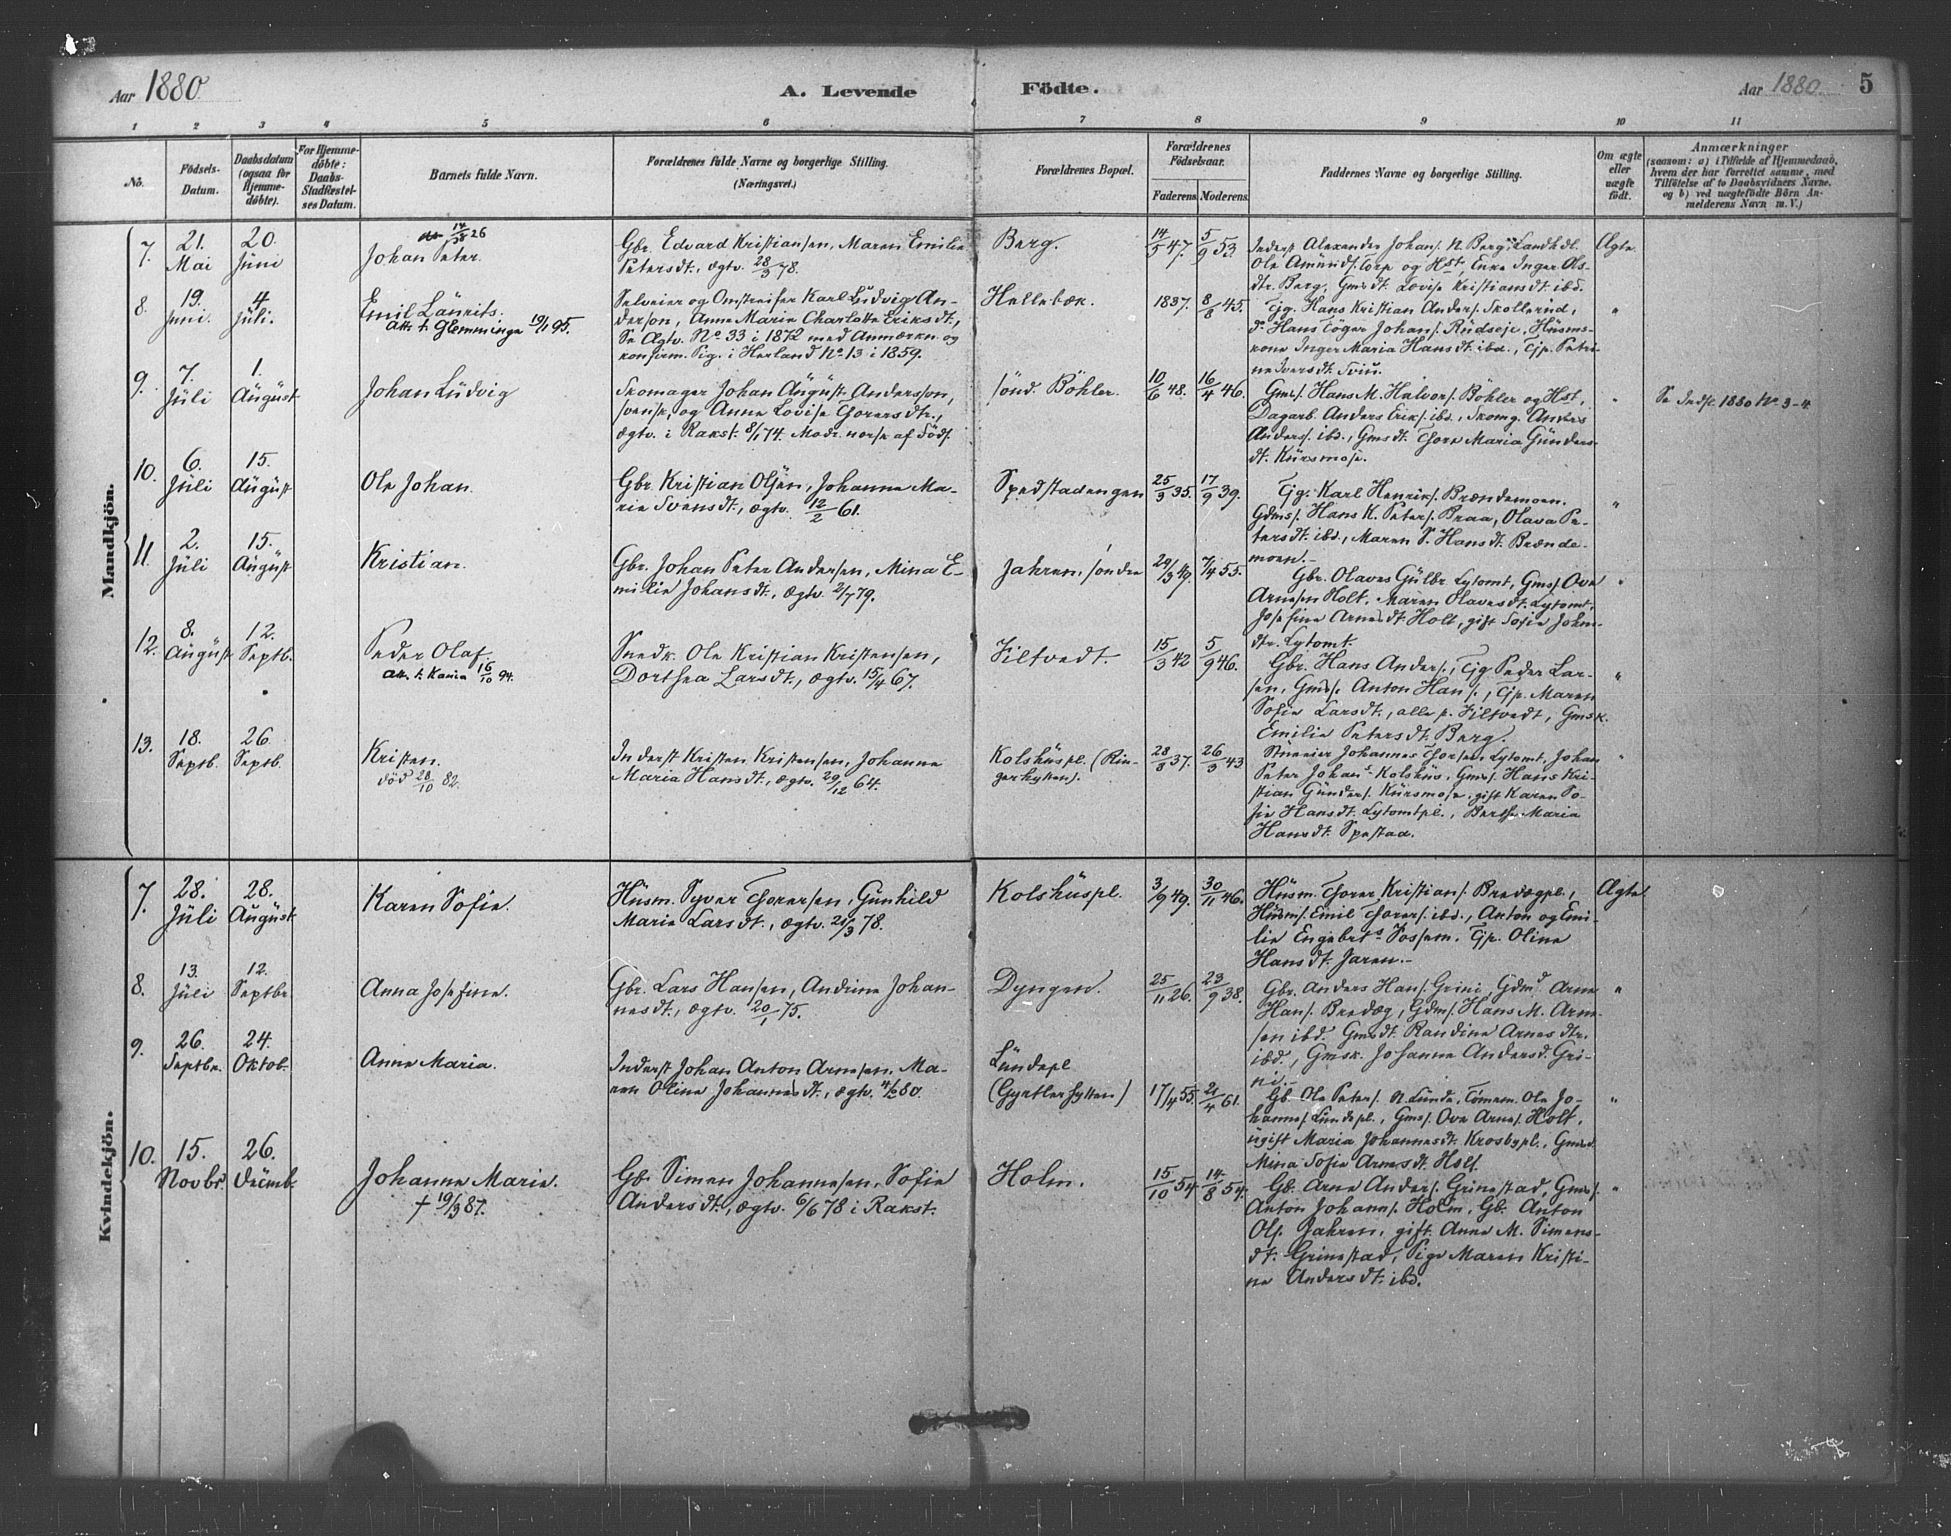 Aar 1880.
A. Levende Födte.
Aar 1880. 5
1 2 3 4 5 6 7 8 9 10 11
No.
Födsels-Datum.
Daabsdatum (ogsaa for Hjemme-döbte).
For Hjemme-döbte: Daabs-Stadfæstel-ses Datum.
Barnets fulde Navn.
Forældrenes fulde Navne og borgerlige Stilling.
(Næringsvei.)
Forældrenes Bopæl.
Forældrenes Födselsaar.
Faderens Moderens.
Faddernes Navne og borgerlige Stilling.
Om ægte eller uægte födt.
Anmærkninger
(saasom: a) i Tilfælde af Hjemmedaab,
hvem der har forrettet samme, med
Tilföielse af to Daabsvidners Navne,
og b) ved uægtefödte Börn An-
melderens Navn m. V.)
Mandkjön.
7. 21. Mai 20. Juni
14/38 26
Johan Peter.
Gbr. Edvard Kristiansen, Maren Emilie
Petersdt., ægtv. 28/3 78.
Berg.
14/5 47. 5/9 53.
Inderst Alexander Johans. N. Berg, Landhdl.
Ole Amunds. Torp og Hst, Enke Inger Ols-
dtr. Berg, Gmsdt. Lovise Kristiansdt. ibd.
Ægte.
8. 19. Juni. 4. Juli.
Emil Laurits.
Att. t. Glemminge 19/1 95.
Selveier og Omstreifer Karl Ludvig An-
derson, Anne Marie Charlotte Eriksdt.,
Se Ægtv. No 33 i 1872 med Anmærkn. og
konfirm. Pig. i Herland No 13 i 1859.
Hellebæk.
1837. 8/8 45.
Tjg. Hans Kristian Anders. Skollerud,
do Hans Töger Johans. Rudseje, Husms-
kone Inger Maria Hansdt. ibd., Tjp. Petri-
ne Iversdt. Sviu.
"
9. 7. Juli 1. August
Johan Ludvig
Skomager Johan August Andersson,
svensk, og Anne Lovise Thoresdtr.,
ægtv. i Rakst. 8/1 74. Modr. norsk af Föds.
sönd. Böhler.
10/6 48. 16/4 46.
Gms. Hans M. Halvors. Böhler og Hst,
Dagarb. Anders Eriks. ibd., Skomg. Anders
Anders. ibd., Gmsdt. Thora Maria Gunders-
dt. Kursmose.
"
Se Indf. 1880 No. 3-4
10. 6. Juli 15. August
Ole Johan.
Gbr. Kristian Olsen, Johanne Ma-
rie Svensdt., ægtv. 12/2 61.
Spedstadengen
25/3 35. 17/9 39.
Tjg. Karl Henriks. Brændemoen.
Gdms. Hans K. Peters. Braa, Olava Pe-
tersdt. ibd., Maren S. Hansdt. Brænde-
moen.-
"
11. 2. Juli 15. August
Kristian.
Gbr. Johan Peter Andersen, Mina E-
milie Johansdt., ægtv. 2/7 79.
Jahren, söndre
29/3 49. 7/4 55.
Gbr. Olaves Gulbr. Lytomt, Gms. Ove
Arnesen Holt, Maren Olavesdt. Lytomt,
Josefine Arnesdt. Holt, gift Sofie Johns-
dtr. Lytomt.
"
12. 8. August 12. Septb.
Peder Olaf
Att. t. Kania 16/10 94.
Snedk. Ole Kristian Kristensen,
Dorthea Larsdt., ægtv. 15/4 67.
Filtvedt.
15/3 42 5/9 46.
Gbr. Hans Anders., Tjg Peder Lar-
sen, Gms. Anton Hans., Tjp. Maren
Sofie Larsdt., alle p. Filtvedt, Gmsk.
Emilie Petersdt. Berg.
"
13. 18. Septb. 26. Septb.
Kristen.
död 28/10 82.
Inderst Kristen Kristensen, Johanne
Maria Hansdt., ægtv. 29/12 64.
Kolshuspl. (Rin-
gerhytten).
28/8 37. 26/3 43
Stueeier Johannes Thorsen Lytomt, Johan
Peter Johans. Kolshus, Gms. Hans Kri-
stian Gunders. Kursmose, gift Karen So-
fie Hansdt. Lytomtpl., Berthe Maria
Hansdt. Spestad.
"
Kvindekjön.
7. 28. Juli 28. August
Karen Sofie.
Husm. Syver Thoresen, Gunhild
Marie Larsdt., ægtv. 29/3 78.
Kolshuspl.
3/9 49. 30/11 46.
Husm. Thorer Kristians. Bredægpl.,
Husms. Emil Thores. ibd., Anton og Emi-
lie Engebrts Fossem. Tjp. Oline
Hansdt. Jaren.-
Ægte
8. 13. Juli 12. Septbr.
Anna Josefine.
Gbr. Lars Hansen, Andrine Johan-
nesdt., ægtv. 20/1 75.
Dyngen.
25/11 26. 23/9 38.
Gbr. Anders Hans. Grini, Gdmd Arne
Hans. Bredæg, Gdms. Hans M. Arne-
sen ibd. Gmsdt. Randine Arnesdtr.
ibd., Gmsk. Johanne Andersd. Gri-
ni.-
"
9. 26. Septbr. 24. Oktob.
Anne Maria.
Inderst Johan Anton Arnesen, Ma-
ren Oline Johannesdt., ægtv. 4/6 80.
Lundepl
(Gyrtlerhytten)
17/4 55. 21/4 61.
Gb. Ole Peters. N. Lunde, Tömm. Ole Jo-
hannes. Lundepl., Gms. Ove Arnes. Holt,
ugift Maria Johannesdt. Krosbypl., Gmsd.
Mina Sofie Arnesdt. Holt.
"
10. 15. Novbr. 26. Decmb.
Johanne Marie.
† 19/3 87.
Gb. Simen Johannesen, Sofie
Andersdt., ægtv. 6/6 78 i Rakst.
Holm.
15/10 54 14/8 54.
Gb. Arne Anders. Grinestad, Gms.
Anton Johanns. Holm, Gb. Anton
Ols. Jahren, gift Anne M. Simens-
dt. Grinestad, Pige Maren Kristi-
ne Andersdt. ibd.
"